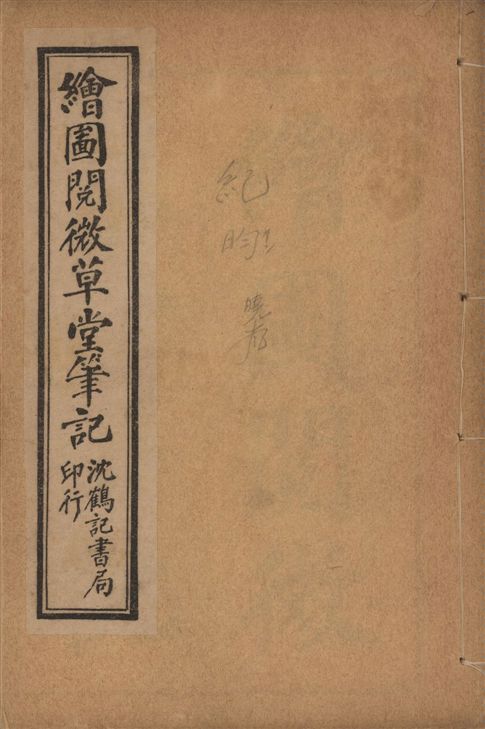 繪圖閱微草堂筆記
沈鶴記書局
印行
紀
昀
曉嵐